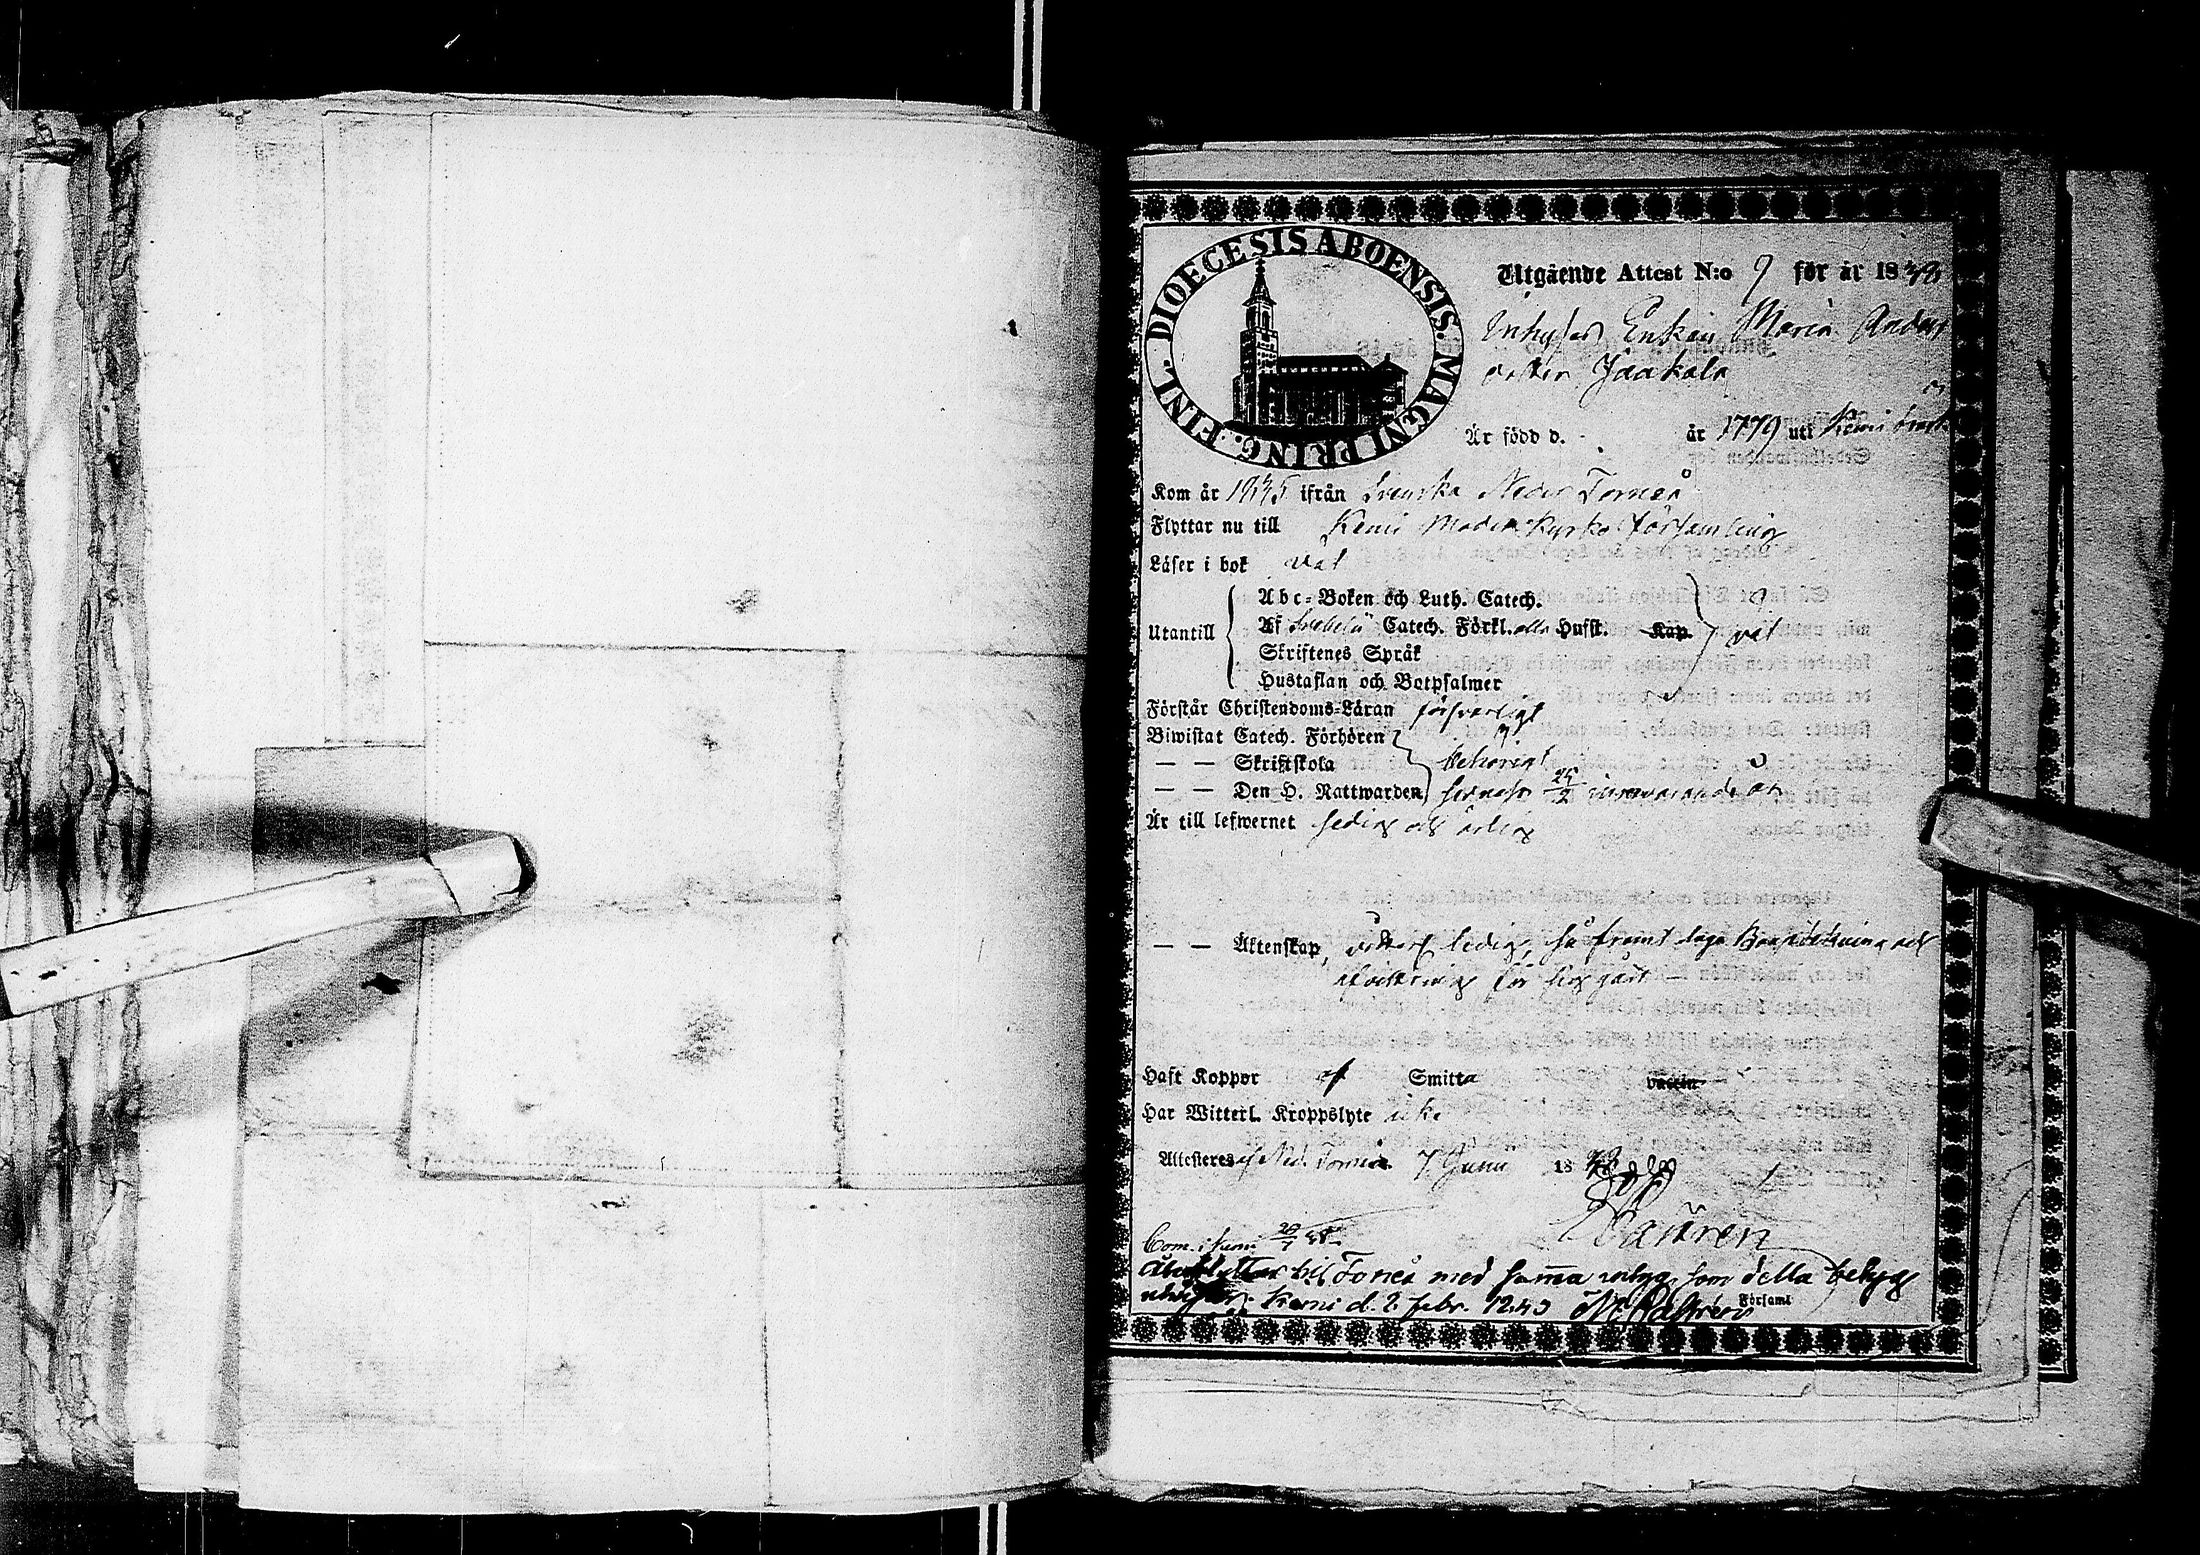 DIOECESIS ABOENSIS. MAGNI PRINC. FINL.
Utgående Attest N:o 9 för år 18
Inhyses Enkan Maria Anders
dotter Jaakola
Är född d. år 1779 uti Kemi
Kom år ifrån Svenska Neder Torneå
Flyttar nu till Kemi Moderkyrko församling
Läser i bok väl
Utantill
Abc-Boken och Luth. Catech.
Af Svebelii Catech. Förkl. alla Hufst. Kap. väl
Skriftenes Språk
Hustaflan och Botpsalmer
Förstår Christendoms-Läran försvarligt
Biwistat Catech. Förhören
— — Skriftskola behörigt
— — Den H. Nattwarden senast 25/2 innevarande år
Är till lefwernet sedig och ärlig
— — Äktenskap, ledig, så framt laga
för sig gått —
Haft Koppor af Smitta vaccin
Har Witterl. Kroppslyte icke
Attesteras af Ned. Torneå 7 Junii 18
Castrén
till Torneå med samma som detta betyg
Kemi d. 2 febr. M. Castrén Församl